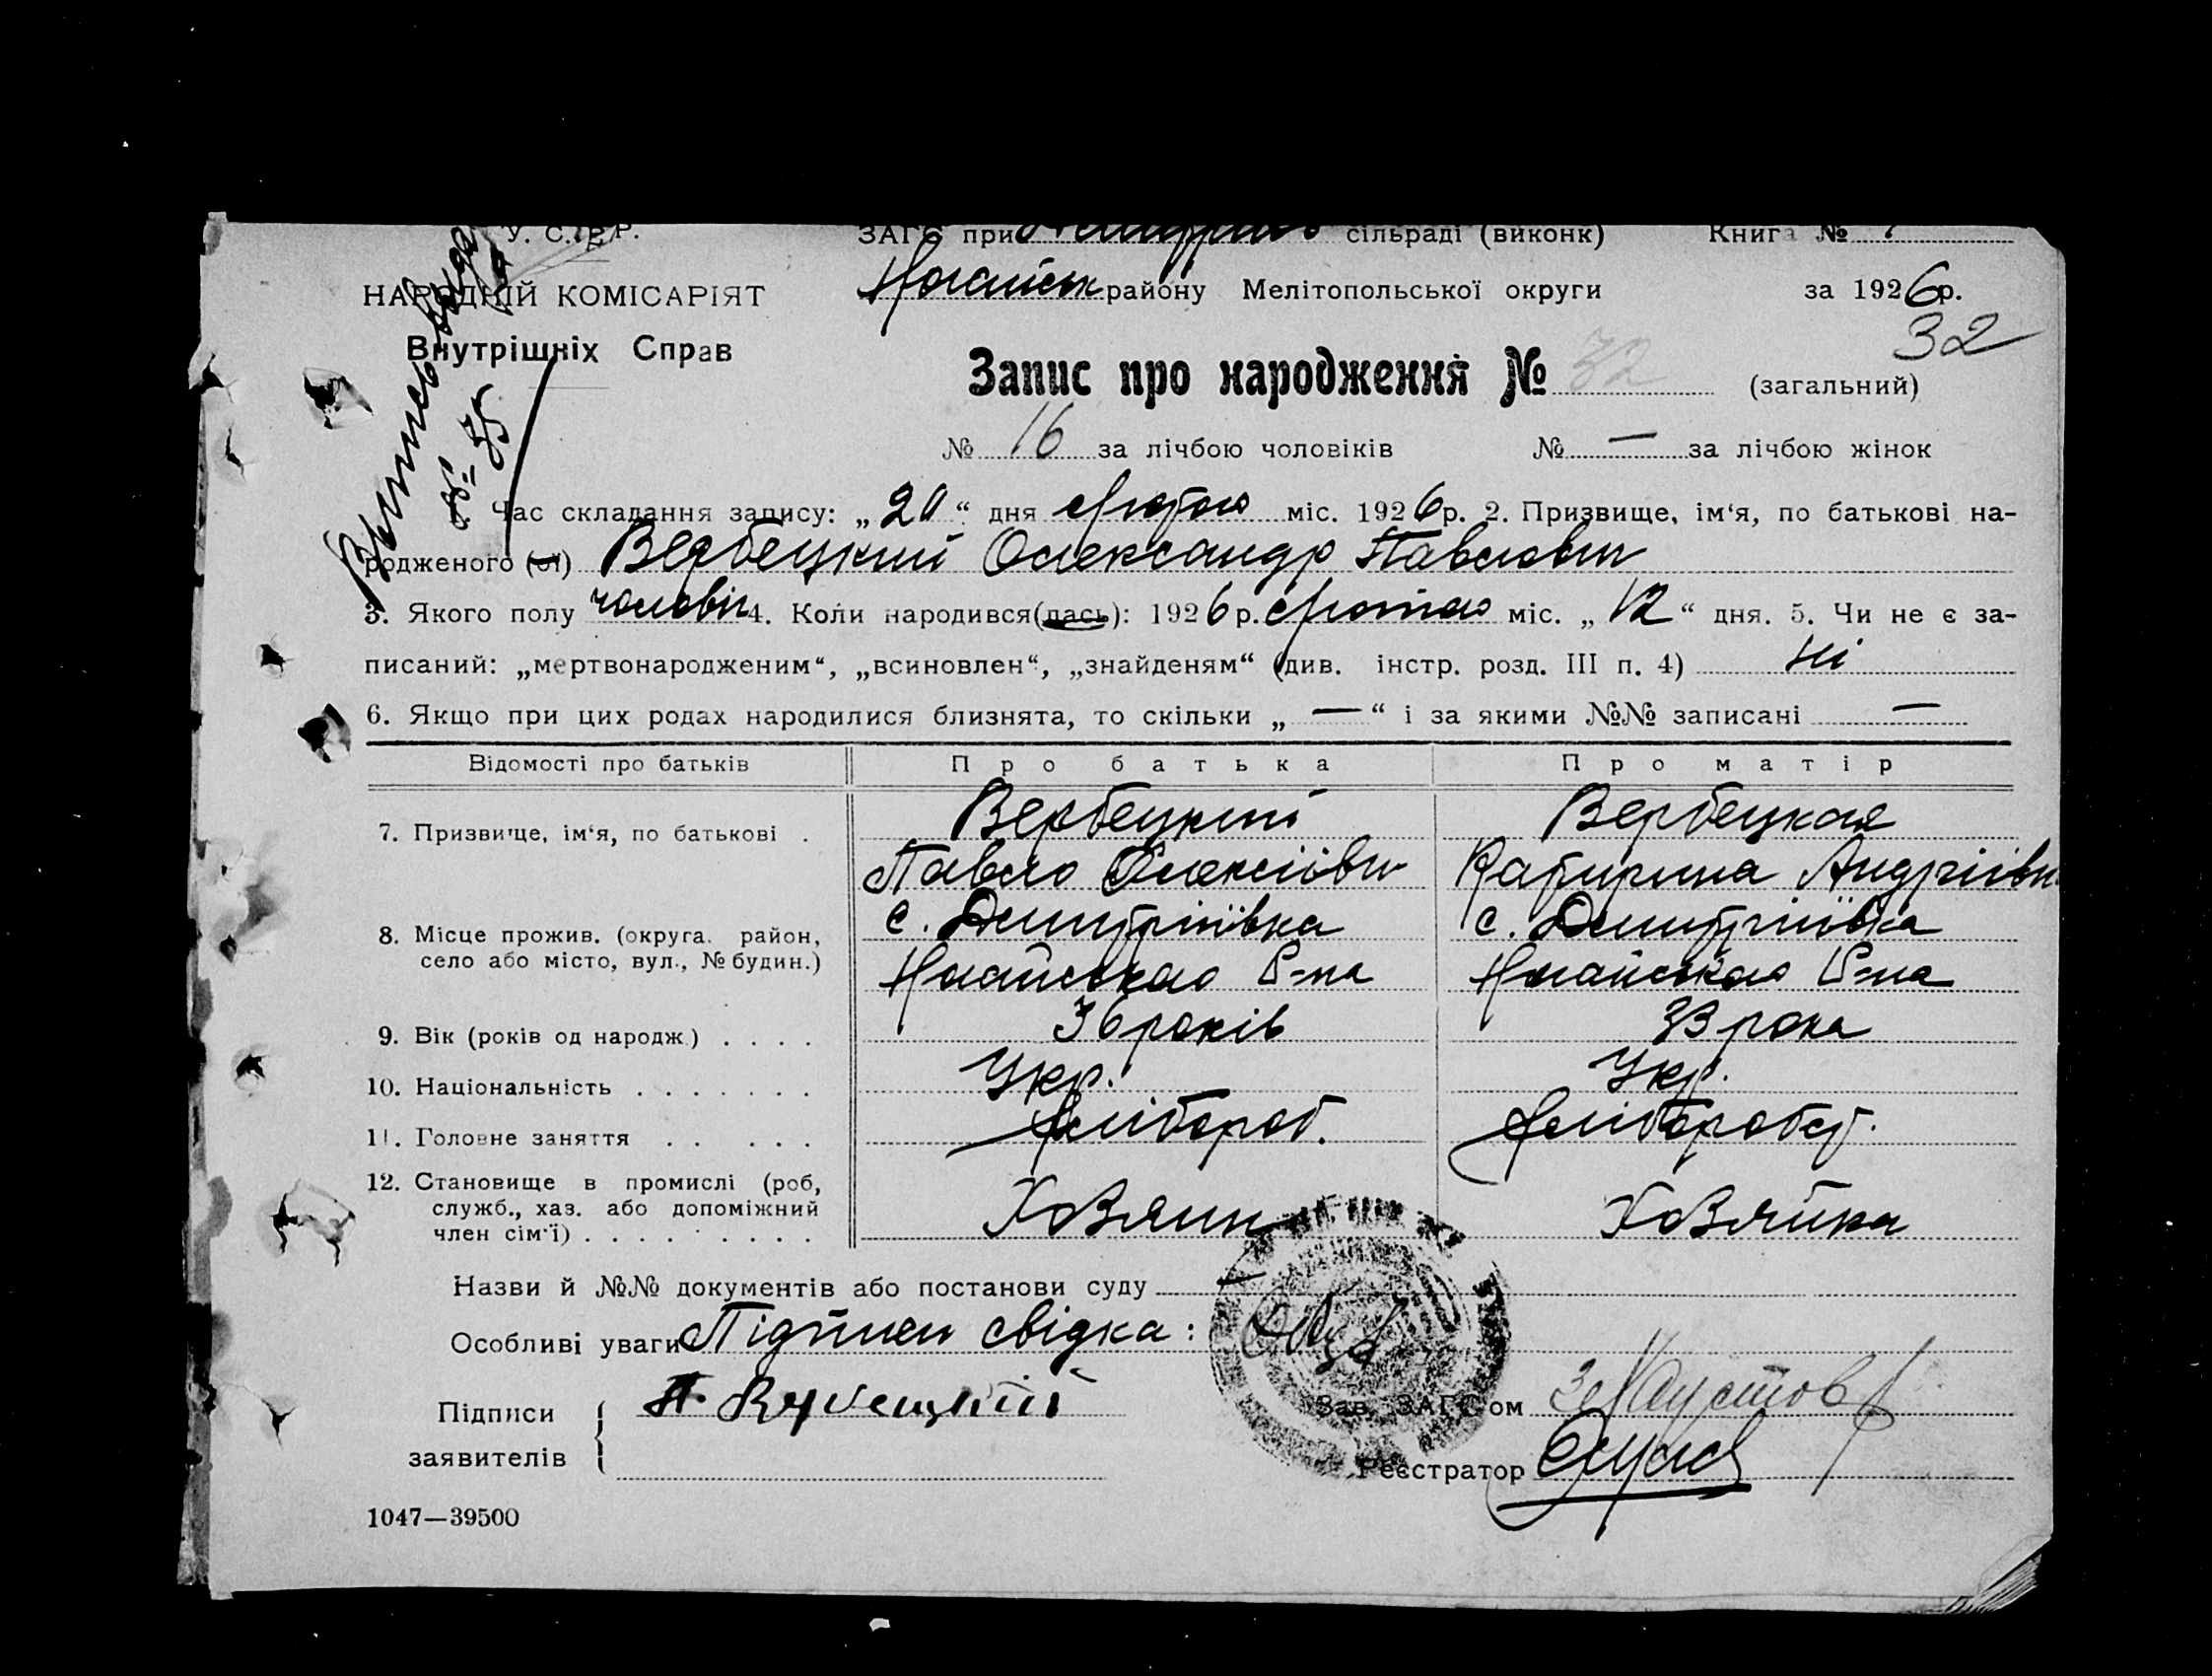 У. С. Р. Р. ЗАГС при сільраді (виконк) Книга №
НАРОДНІЙ КОМІСАРІЯТ Ногайськ району Мелітопольської округи за 1926 р.
Внутрішніх Справ 32
Запис про народження № 32 (загальний)
№ 16 за лічбою чоловіків № — за лічбою жінок
1. Час складання запису: „20“ дня Лютого міс. 1926 р. 2. Призвище, ім‘я, по батькові на-
родженого (ої) Вербецкий Олександр Павлович
3. Якого полу чоловіч 4. Коли народився(лась): 1926 р. Лютого міс. „12“ дня. 5. Чи не є за-
писаний: „мертвонародженим“, „всиновлен“, „знайденям“ (див. інстр. розд. III п. 4) ні
6. Якщо при цих родах народилися близнята, то скільки „ — “ і за якими №№ записані —
Відомості про батьків Про батька Про матір
7. Призвище, ім‘я, по батькові . Вербецкий Вербецкая
Павло Олексіїви Катирина Андріївн
8. Місце прожив. (округа, район, с. Дмитріївка с. Дмитріївка
село або місто, вул., № будин.) Ногайського р-на Ногайського р-на
9. Вік (років од народж.) . . . . 36 років 33 рока
10. Національність . . . . . . . Укр. Укр.
11. Головне заняття . . . . . Хлібороб. Хліборобст.
12. Становище в промислі (роб,
служб., хаз. або допоміжний Хозяин Хозяйка
член сім‘ї) . . . . . . . . .
Назви й №№ документів або постанови суду —
Особливі уваги Підписи свідка:
Підписи П. Вербецкий Зав. ЗАГСом
заявителів
Реєстратор
1047—39500